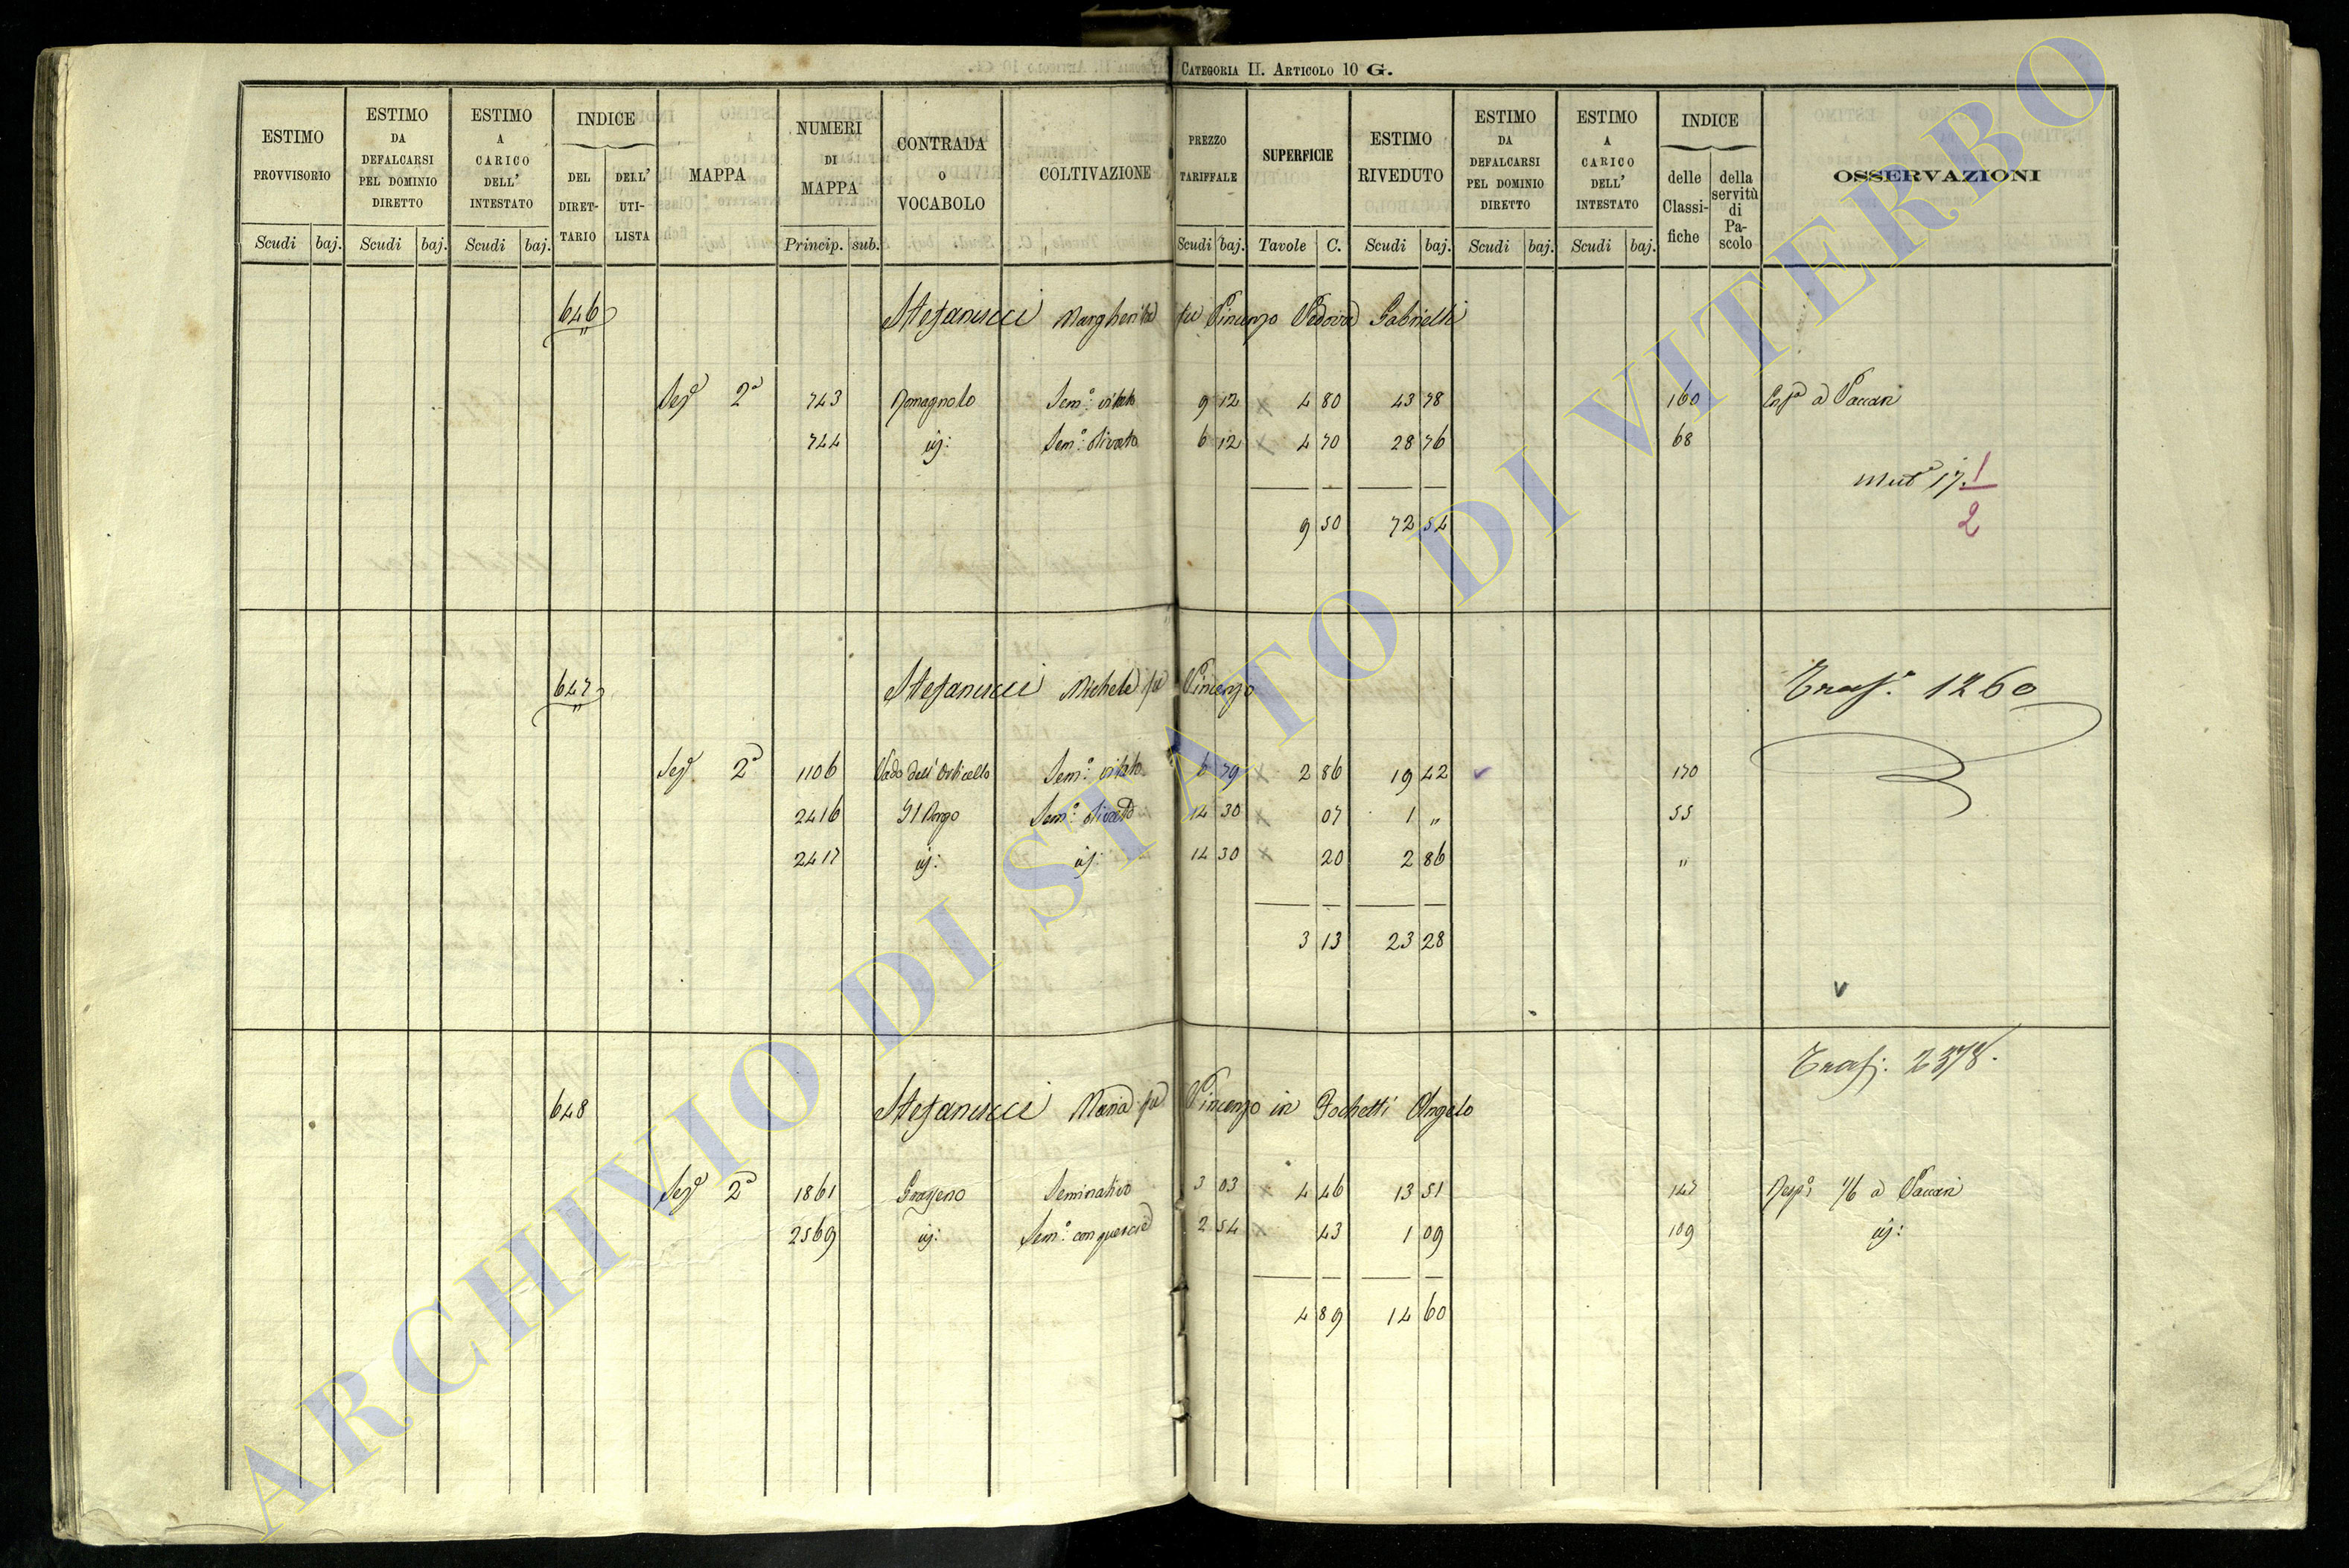 CATEGORIA II. ARTICOLO 10 G.
ESTIMO PROVVISORIO Scudi baj.
ESTIMO DA DEFALCARSI PEL DOMINIO DIRETTO Scudi baj.
ESTIMO A CARICO DELL' INTESTATO Scudi baj.
INDICE DEL DIRET-TARIO DELL' UTI-LISTA
MAPPA
NUMERI DI MAPPA Princip. sub.
CONTRADA O VOCABOLO
COLTIVAZIONE
PREZZO TARIFFALE Scudi baj.
SUPERFICIE Tavole C.
ESTIMO RIVEDUTO Scudi baj.
ESTIMO DA DEFALCARSI PEL DOMINIO DIRETTO Scudi baj.
ESTIMO A CARICO DELL' INTESTATO Scudi baj.
INDICE delle Classi-fiche della servitù di Pa-scolo
OSSERVAZIONI
646 Stefanucci Margherita fu Vincenzo Vedova Gabrielli
Sezᵉ 2ª 743 Romagnolo Semº: vitato 9 12 x 4 80 43 78 160 a Vaccari
744 id: Semº: olivato 6 12 x 4 70 28 76 68
Mutª 17. 1/2
9 50 72 54
647 Stefanucci Michele fu Vincenzo Trasº. 1260
Sezᵉ 2ª 1106 Vado dell' Orticello Semº: vitato 6 79 x 2 86 19 42 170
2416 Il Borgo Semº: olivato 14 30 x 07 1 „ 55
2417 id: id: 14 30 x 20 2 86 „
3 13 23 28
V
Trasf: 2378.
648 Stefanucci Maria fu Vincenzo in Fochetti Angelo
Sezᵉ 2ª 1861 Seminativo 3 03 x 4 46 13 51 147 1/6 a Vaccari
2569 id: Semº: con quercie 2 54 x 43 1 09 109 id:
4 89 14 60
ARCHIVIO DI STATO DI VITERBO